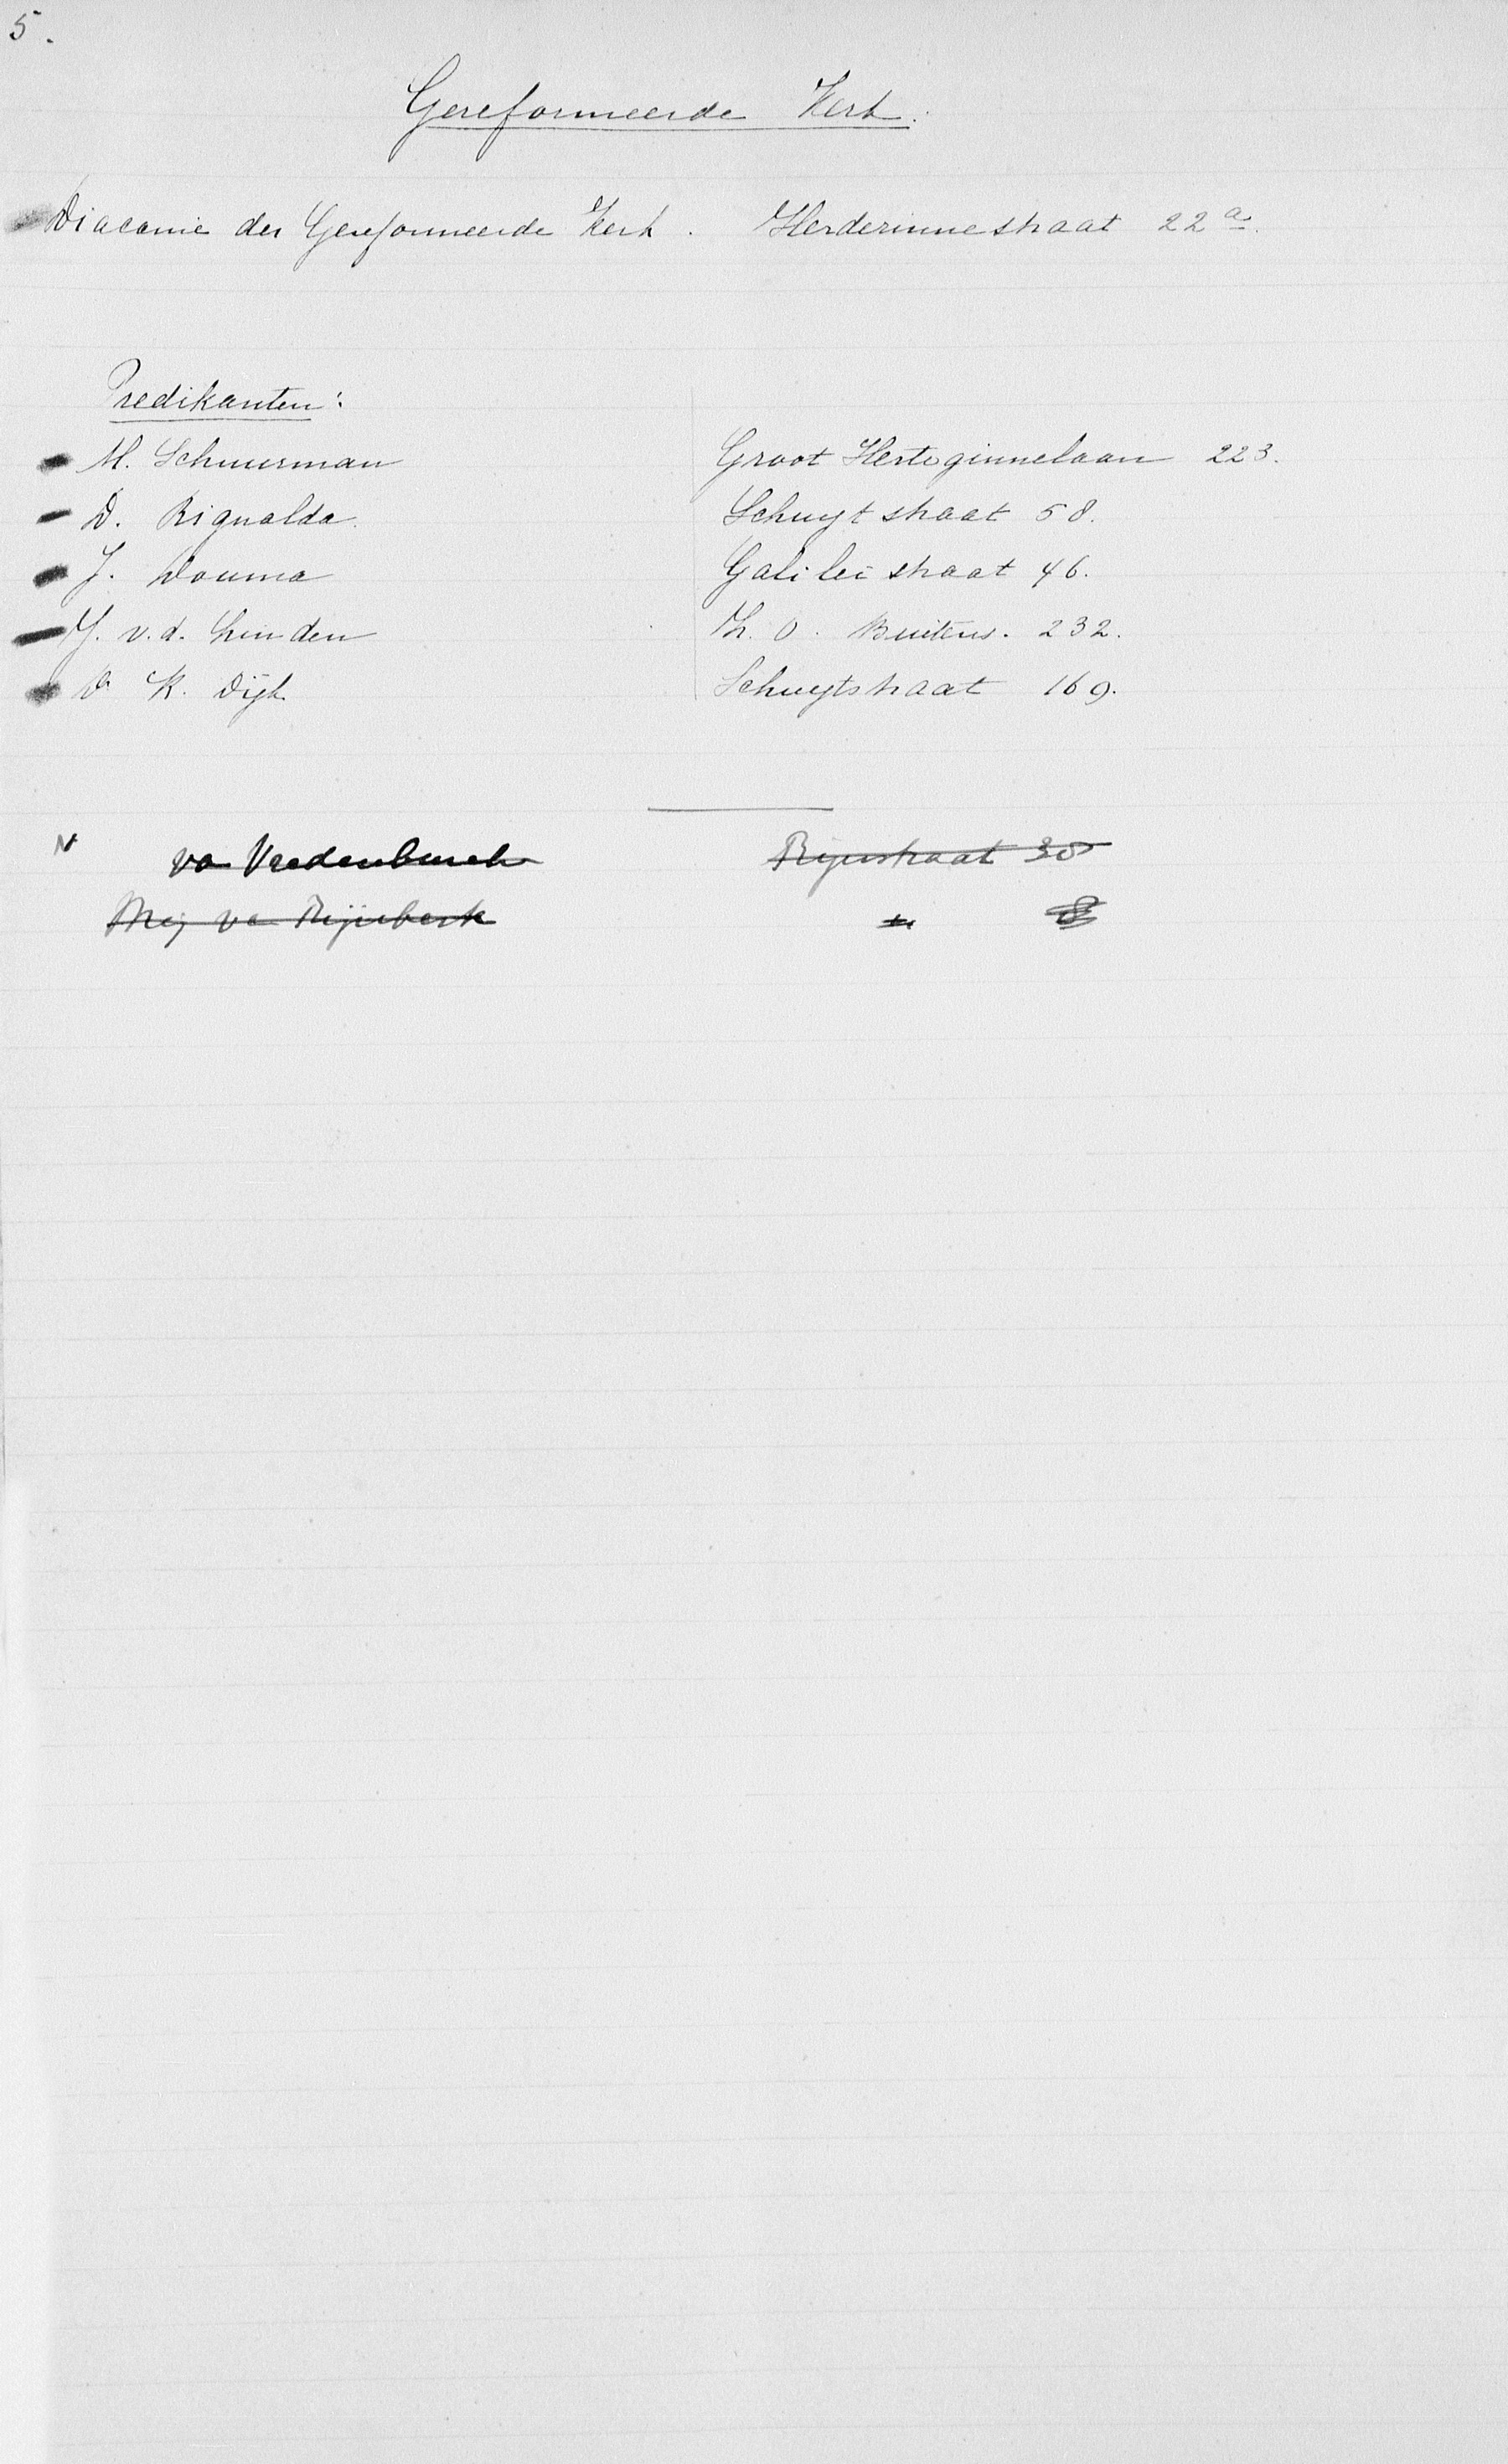 5.
Gereformeerde Kerk.
Diaconie der Gereformeerde Kerk. Herderinnestraat 22a.
Predikanten:
M. Schuurman Groot Hertoginnelaan 223.
D. Rignalda. Schuytstraat 58.
J. Douma Galileistraat 46.
J. v.d. Linden Z. O. Buitens. 232.
Dr K. Dijk Schuytstraat 169.
N va Vredenburch Rijnstraat 30
Mej va Rijnberk "